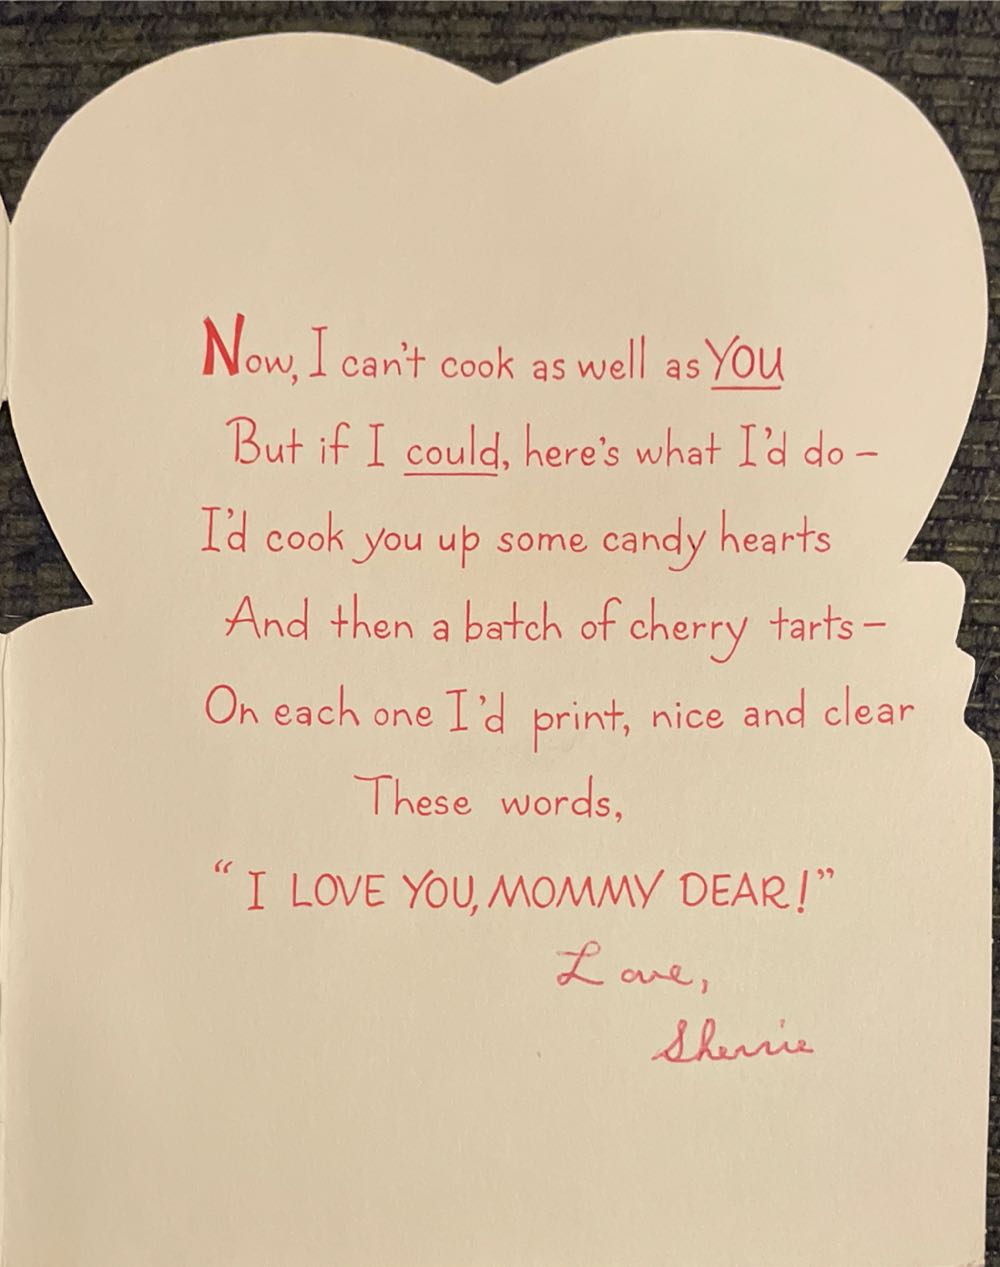 Now, I can't cook as well as YOU
But if I could, here's what I'd do –
I'd cook you up some candy hearts
And then a batch of cherry tarts –
On each one I'd print, nice and clear
These words,
“I LOVE YOU, MOMMY DEAR!”
Love,
Sherrie